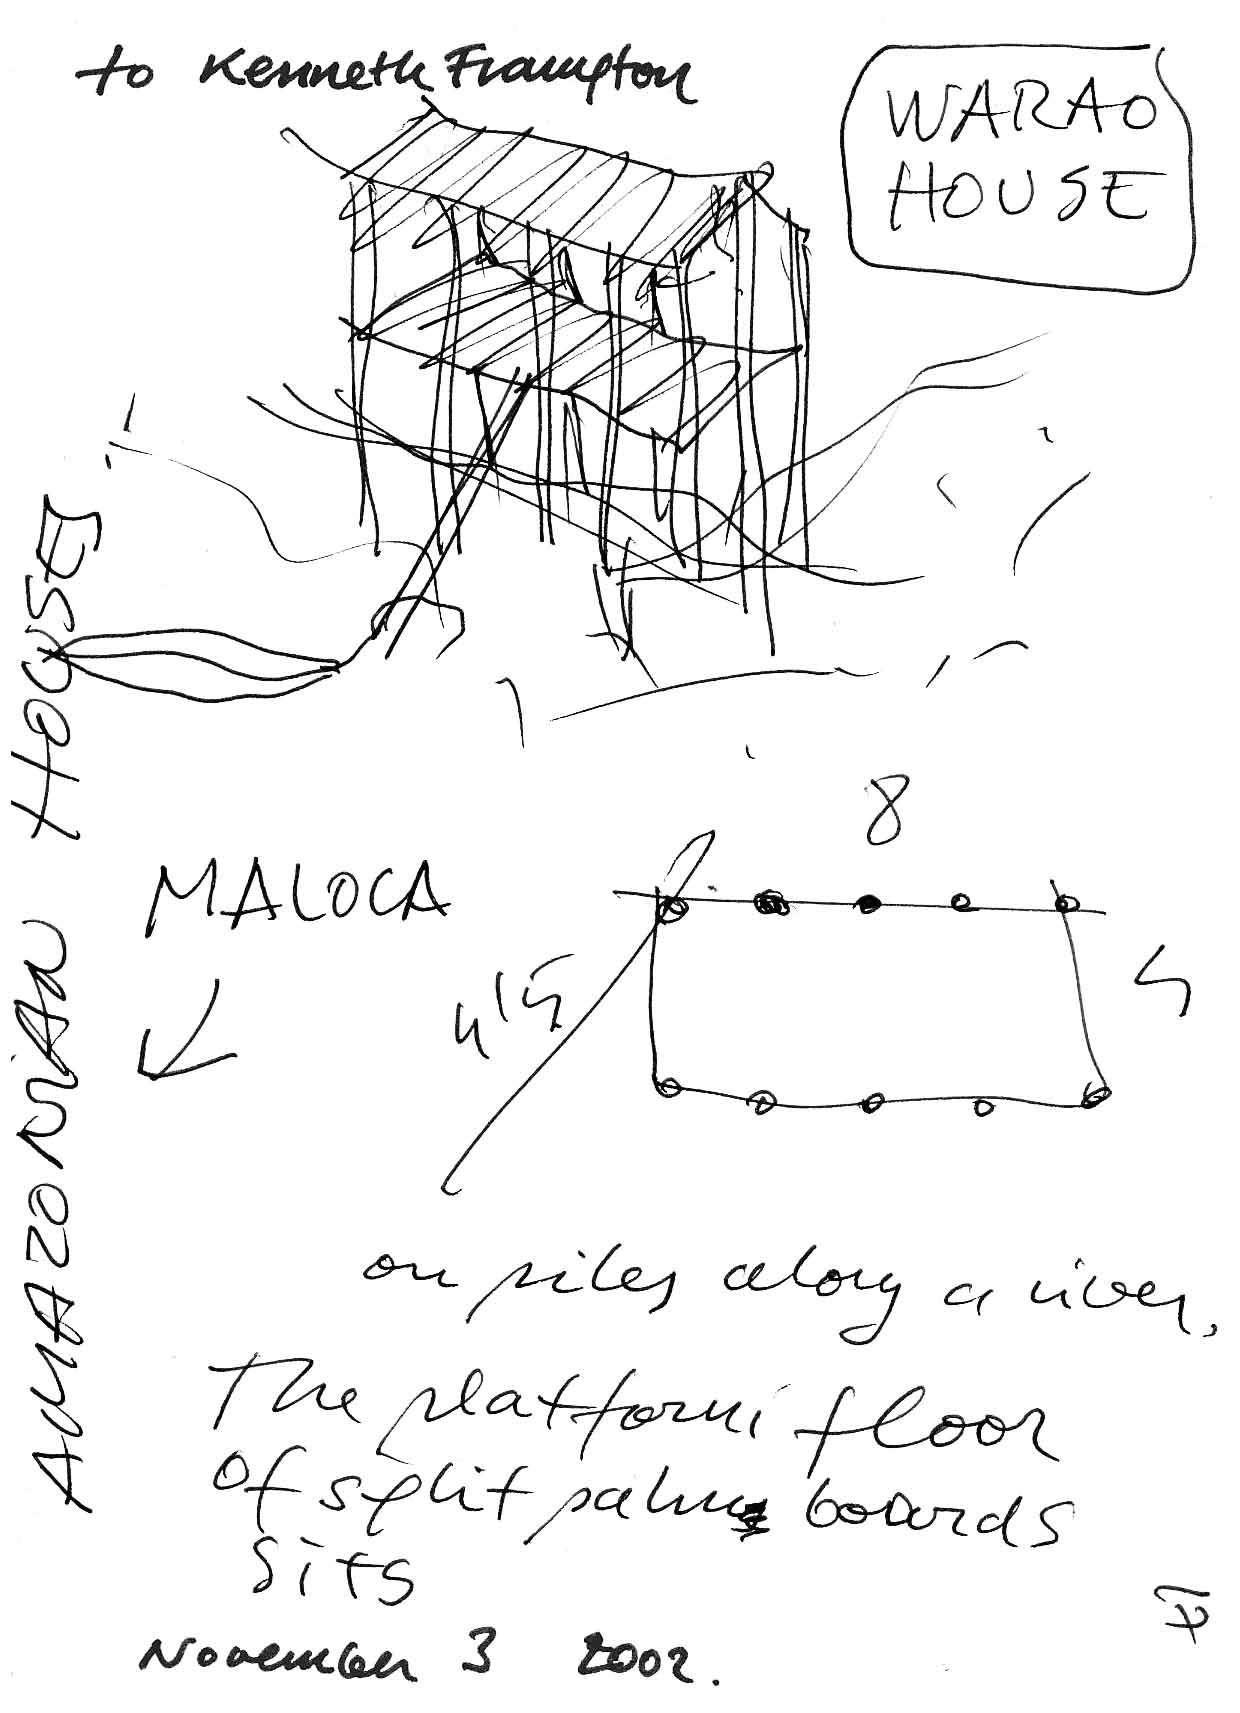 to Kenneth Frampton
WARAO
HOUSE
AMAZONIAN HOUSE
MALOCA
8
4
on piles along a river,
The platform floor
of split palm boards
sits
November 3 2002.